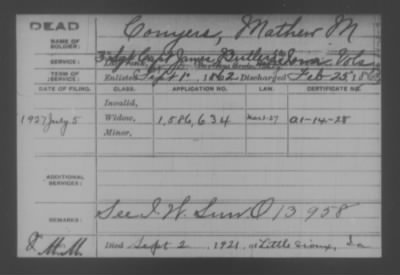 DEAD
NAME OF SOLDIER: Conyers, Mathew M
SERVICE: 3 Sgt Capt James Butler's Co Iowa Vols
TERM OF SERVICE: Enlisted Sept 1, 1862 Discharged Feb 25
DATE OF FILING. CLASS. APPLICATION NO. CERTIFICATE NO.
Invalid,
1927 July 5 Widow, 1,586,634 A1-14-28
Minor,
ADDITIONAL SERVICES:
REMARKS: See I. W. Surv O 13958
M.M. Died Sept 2, 1921, at Little Sioux, Ia